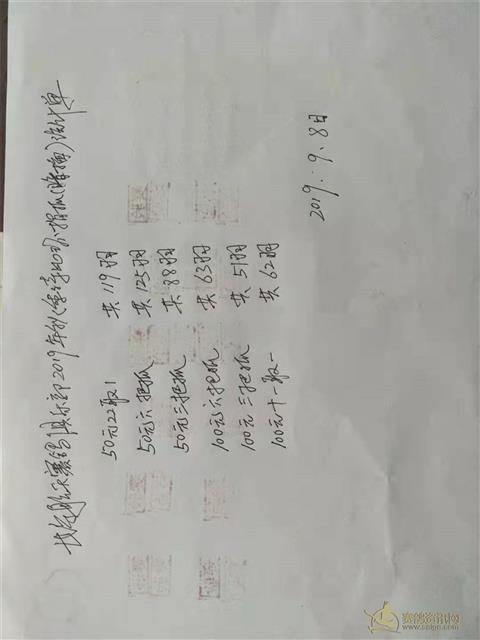 航天赛鸽俱乐部2019年秋季 指插(  )统计单
50元22取1 共119羽
50元六把抓 共125羽
50元三把抓 共88羽
100元六把抓 共63羽
100元三把抓 共51羽
100元十一取一 共62羽
2019.9.8日
赛鸽资讯网